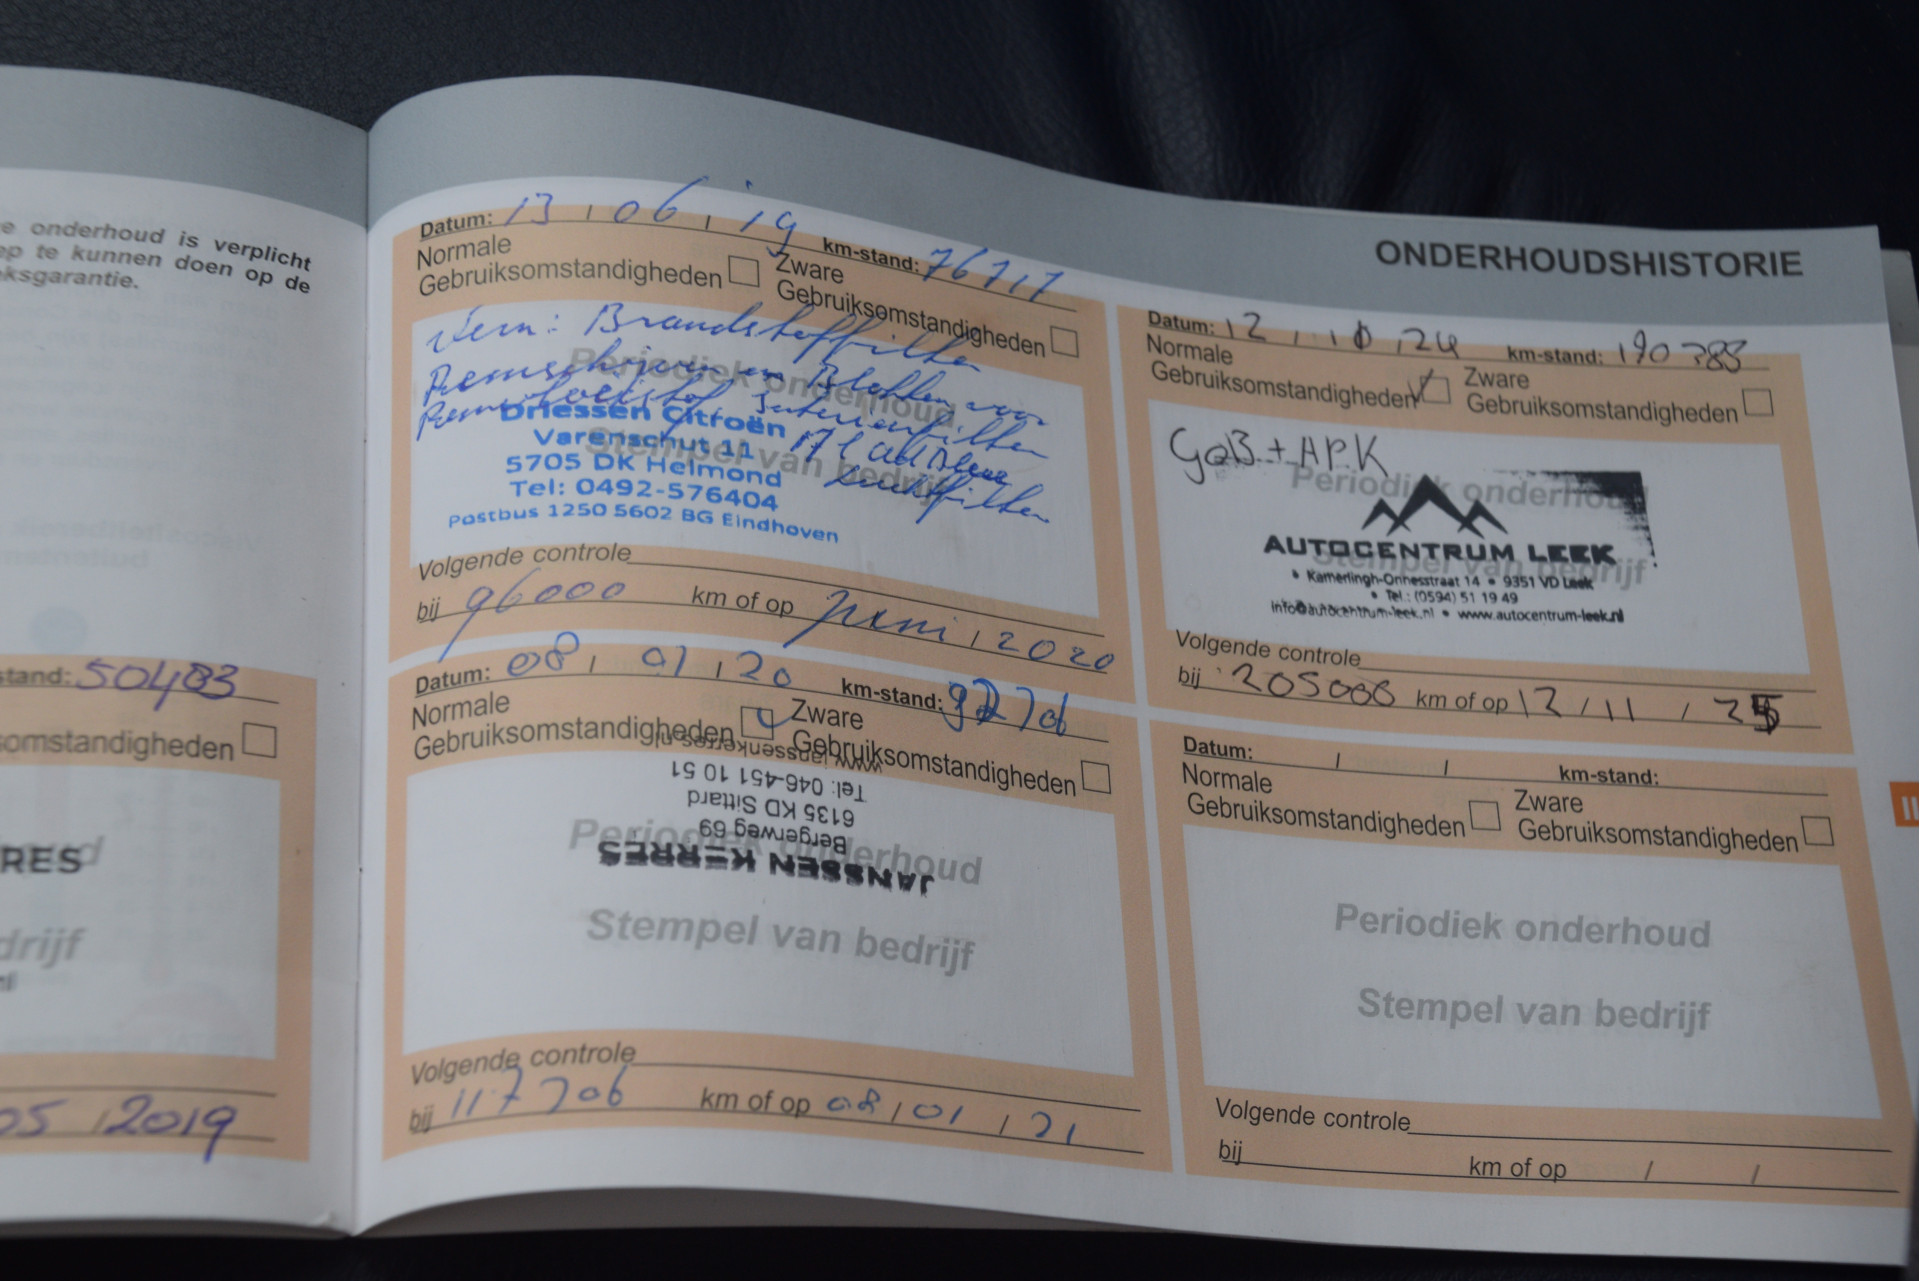 e onderhoud is verplicht
ep te kunnen doen op de
ksgarantie.
stand: 50483
omstandigheden
RES
drijf
nl
05 / 2019
ONDERHOUDSHISTORIE
Datum: 13 / 06 / 19 km-stand: 76717
Normale
Gebruiksomstandigheden
Zware
Gebruiksomstandigheden
Vern: Brandstoffilter
Remschijven en Blokken voor
Remvloeistof, Interieurfilter
17 l AdBlue
Luchtfilter
Periodiek onderhoud
Stempel van bedrijf
Driessen Citroën
Varenschut 11
5705 DK Helmond
Tel: 0492-576404
Postbus 1250 5602 BG Eindhoven
Volgende controle
bij 96000 km of op Juni / 2020
Datum: 08 / 01 / 20 km-stand:
Normale
Gebruiksomstandigheden
Zware
Gebruiksomstandigheden
JANSSEN KERRES
Bergerweg 69
6135 KD Sittard
Tel: 046-451 10 51
www.janssenkerres.nl
Periodiek onderhoud
Stempel van bedrijf
Volgende controle
bij 117706 km of op 08 / 01 / 21
Datum: 12 / 10 / 24 km-stand: 190385
Normale
Gebruiksomstandigheden
Zware
Gebruiksomstandigheden
GoB + APK
Periodiek onderhoud
Stempel van bedrijf
AUTOCENTRUM LEEK
• Kamerlingh-Onnesstraat 14 • 9351 VD Leek
• Tel.: (0594) 51 19 49
info@autocentrum-leek.nl • www.autocentrum-leek.nl
Volgende controle
bij 205000 km of op 12 / 11 / 25
Datum: / / km-stand:
Normale
Gebruiksomstandigheden
Zware
Gebruiksomstandigheden
Periodiek onderhoud
Stempel van bedrijf
Volgende controle
bij km of op / /
II